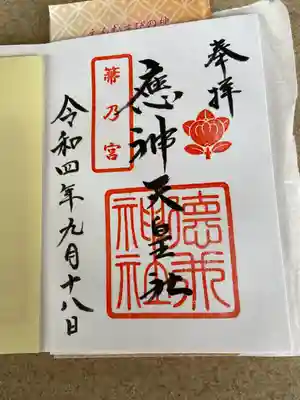 奉拝
應神天皇社
箒乃宮
神社
令和四年九月十八日